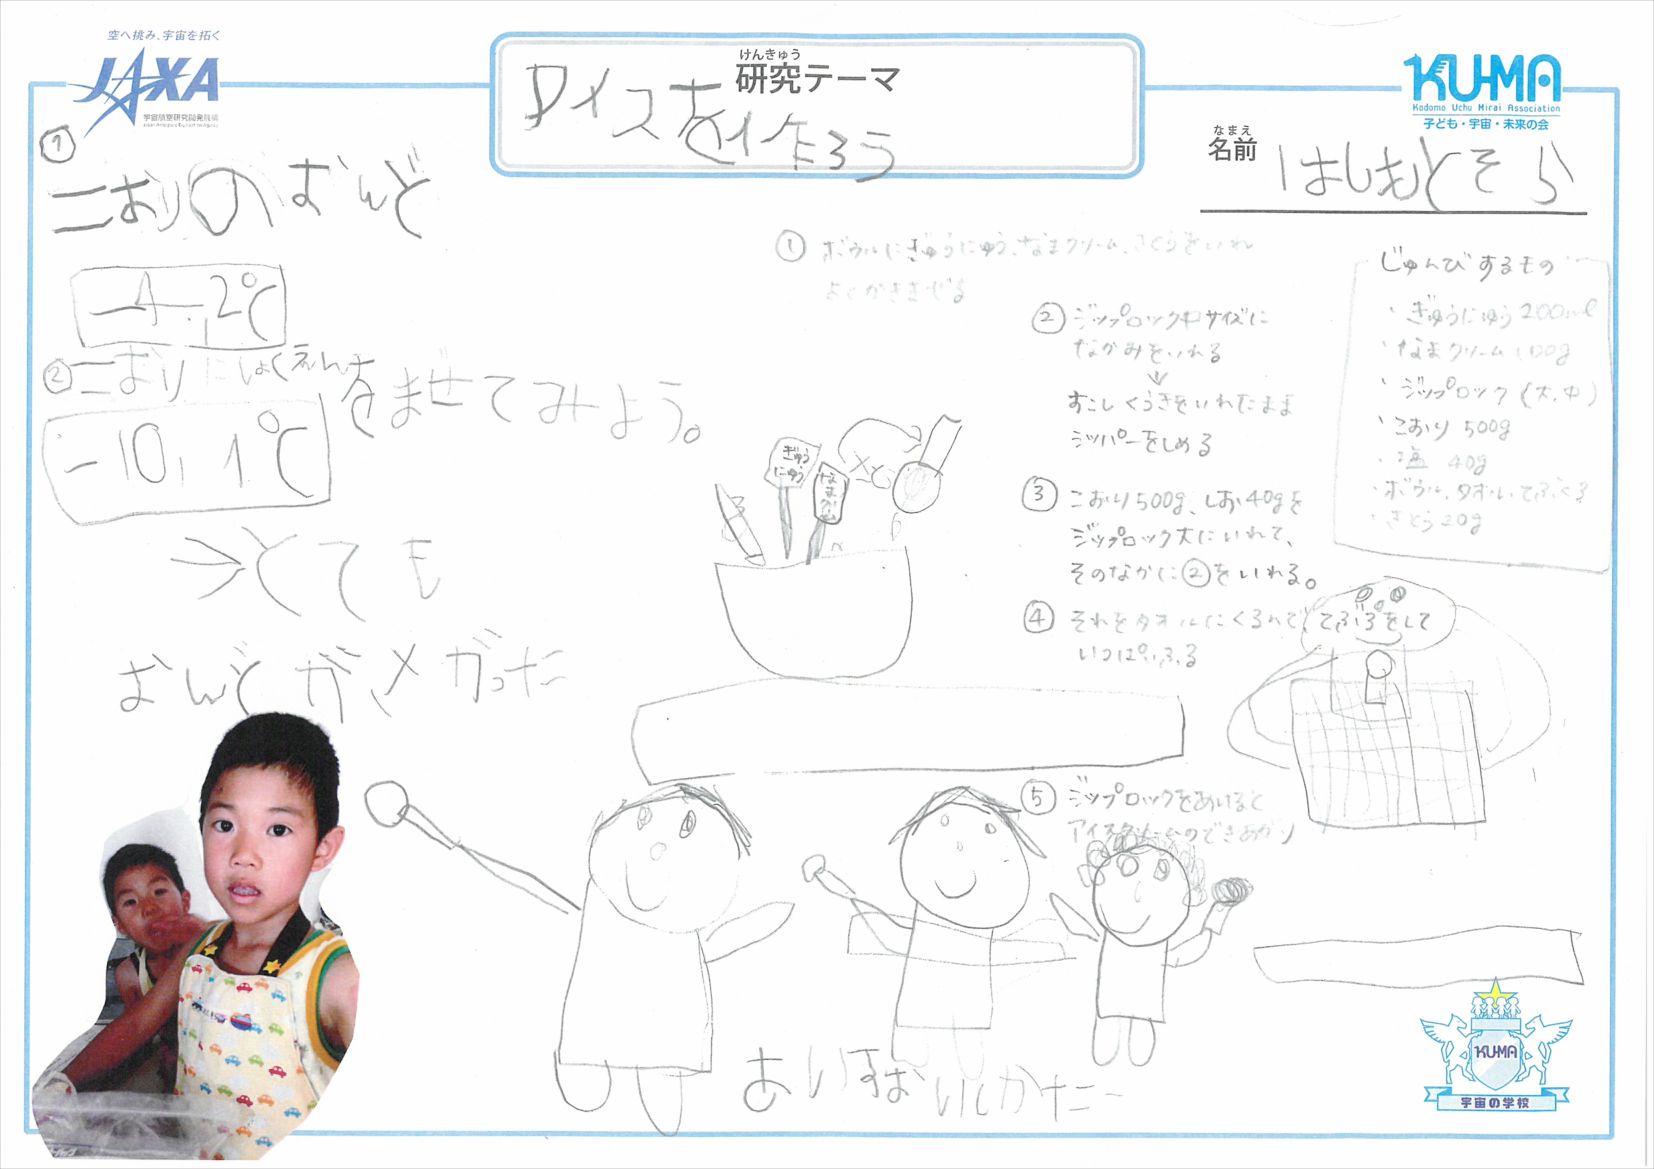 空へ挑み、宇宙を拓く
JAXA
宇宙航空研究開発機構
Japan Aerospace Exploration Agency
けんきゅう
研究テーマ
アイスを作ろう
KUMA
Kodomo Uchu Mirai Association
子ども・宇宙・未来の会
なまえ
名前
はしもとそら
①
こおりのおんど
-4.2℃
②こおりにしょくえんをませてみよう。
-10,1℃
→とても
おんどがメがった
①ボウルにぎゅうにゅう、なまクリーム、さとうをいれ
よくかきませる
②ジップロック中サイズに
なかみをいれる
↓
すこしくうきをいれたまま
ジッパーをしめる
③こおり500g、しお40gを
ジップロック大にいれて、
そのなかに②をいれる。
④それをタオルにくるんで、てぶくろをして
いっぱいふる
⑤ジップロックをあけると
アイスクリームのできあがり
じゅんびするもの
・ぎゅうにゅう200ml
・なまクリーム100g
・ジップロック(大、中)
・こおり 500g
・塩 40g
・ボウル、タオル、てぶくろ
・さとう20g
ぎゅう
にゅう
なまクリーム
あいすおいしかたー
KUMA
宇宙の学校